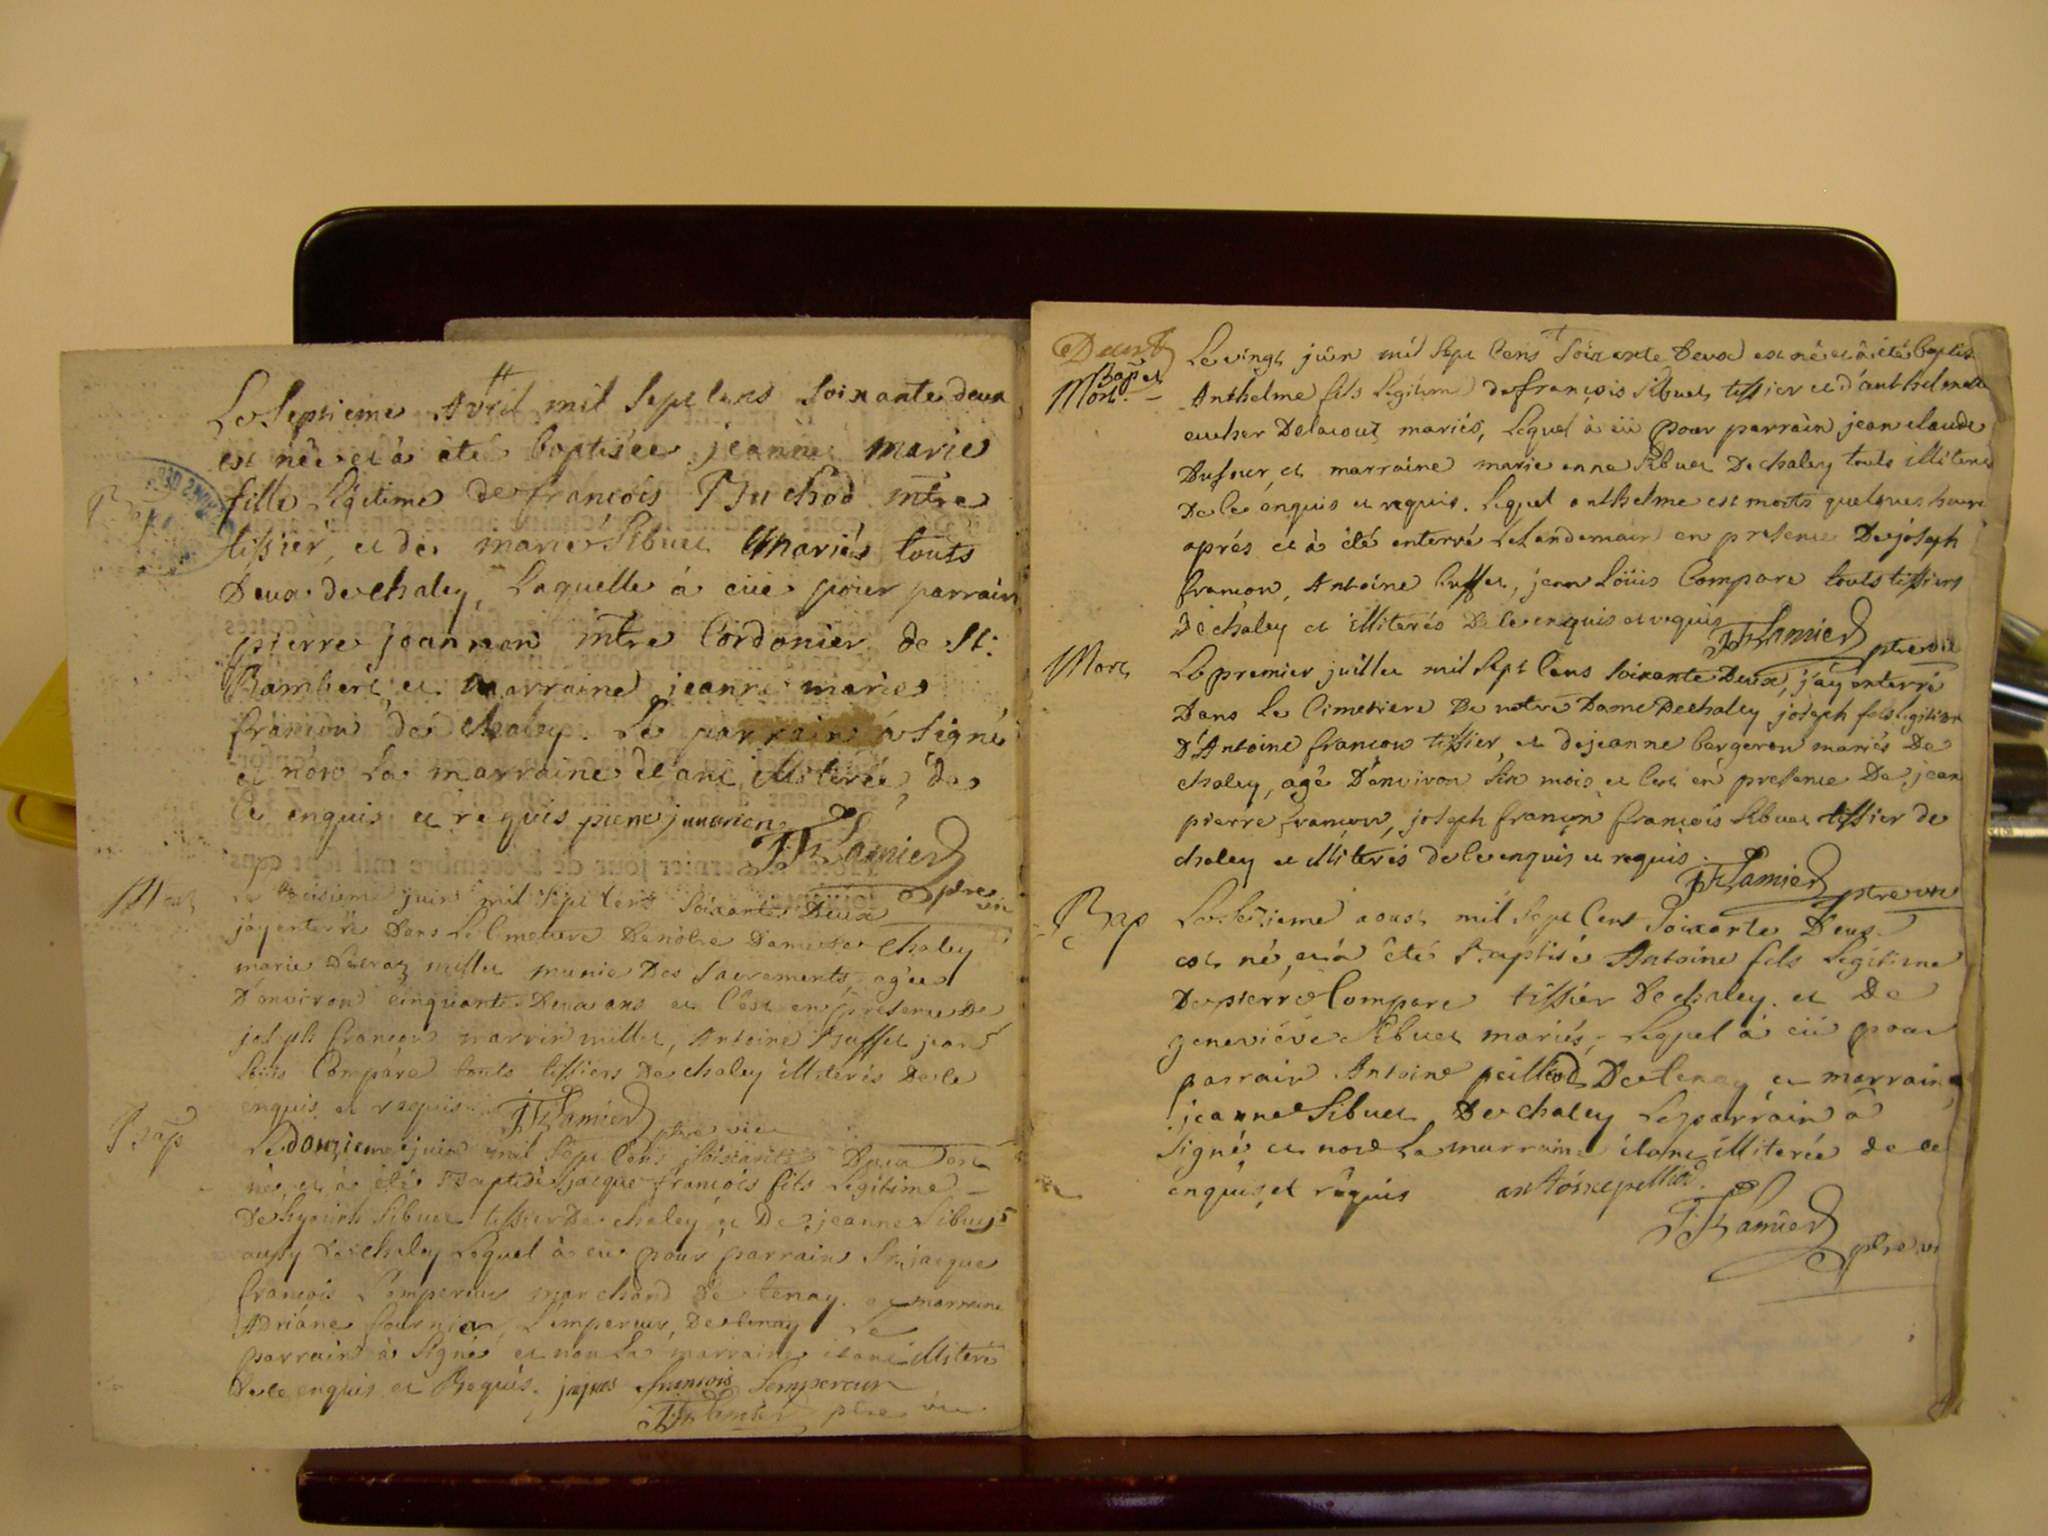 Bap.
Le Septieme Avril mil Sept Cens Soixante deux
est née et à été baptisée jeanne marie
fille Légitime de françois Buchod mtre
tissier, et de marie Sibuet Mariés touts
Deux de chaley, Laquelle à eüe pour parrain
pierre joannon mtre Cordonier de St:
Rambert et marraine jeanne marie
françon de chaley. Le parrain à Signé
et non La marraine étant illiterée, de
ce enquis et requis pierre
JFRLamier
ptre vic
Mort
Le troisieme juin mil Sept Cens Soixante Deux
j'ay enterré Dans Le Cimetiere De nôtre Dame De Chaley
marie millet munie Des Sacrements, agée
D'environ cinquante Deux ans et C'est en presence De
joseph françon marin millet, Antoine Buffet jean
Loüis Compare touts tissiers De chaley illiterés De ce
enquis et requis JFRLamier ptre vic
Bap
Le douzieme juin mil Sept Cens Soixante Deux est
né, et à été Baptisé jacque françois fils Legitime
De hyacinth Sibuet tissier De chaley et De jeanne Sibuet
aussy De chaley Lequel à eu pour parrain Sr. jacque
françois L'empereur marchand De tenay. et marraine
Adriane fournier L'empereur, De tenay Le
parrain à Signé et non La marraine étant illiterée
De ce enquis et Requis. jaques francois Lempereur
JFRLamier ptre vic
Bapt et
Mort.
Le vingt juin mil Sept Cens Soixante Deux est né et à été baptisé
Anthelme fils Légitime de françois Sibuet tissier et d'anthelmette
cucher Delacout mariés, Lequel à eü pour parrain jean claude
Dufour, et marraine marie anne Sibuet De chaley touts illiterés
De ce enquis et requis. Lequel anthelme est morts quelques heures
aprés et à été enterré Le Landemain en presence De joseph
françon, Antoine Buffet, jean Loüis Compare touts tissiers
De chaley et illiterés De ce enquis et requis
JFRLamier ptre vic
Mort
Le premier juillet mil Sept Cens Soixante Deux, j'ay enterré
Dans Le Cimetiere De notre Dame De chaley joseph fils Legitime
D'Antoine françon tissier, et de jeanne bergeron mariés De
chaley, agé D'environ Six mois et C'est en presence De jean
pierre françon, joseph françon françois Sibuet tissier de
chaley et illiterés de ce enquis et requis.
JFRLamier ptre vic
Bap
Le Seizieme aoust mil Sept Cens Soixante Deux
est né, et à été Baptisé Antoine fils Legitime
De pierre Compare tissier De chaley. et De
geneviéve Sibuet mariés, Lequel à eü pour
parrain Antoine peilliod De tenay et marraine
jeanne Sibuet De chaley Le parrain à
Signé et non La marraine étant illiterée de ce
enquis, et réquis antoine peilliod.
JFRLamier
ptre vic